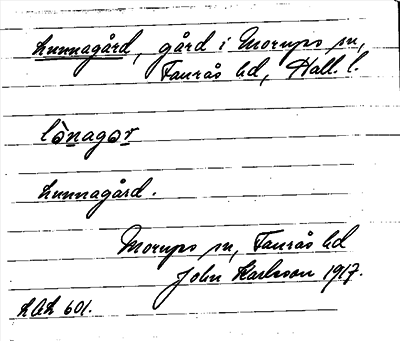 Lunnagård, gård i Morups sn,
Faurås hd, Hall. l.
lònagər
Lunnagård.
Morups sn, Faurås hd
John Karlsson 1917.
LAL 601.